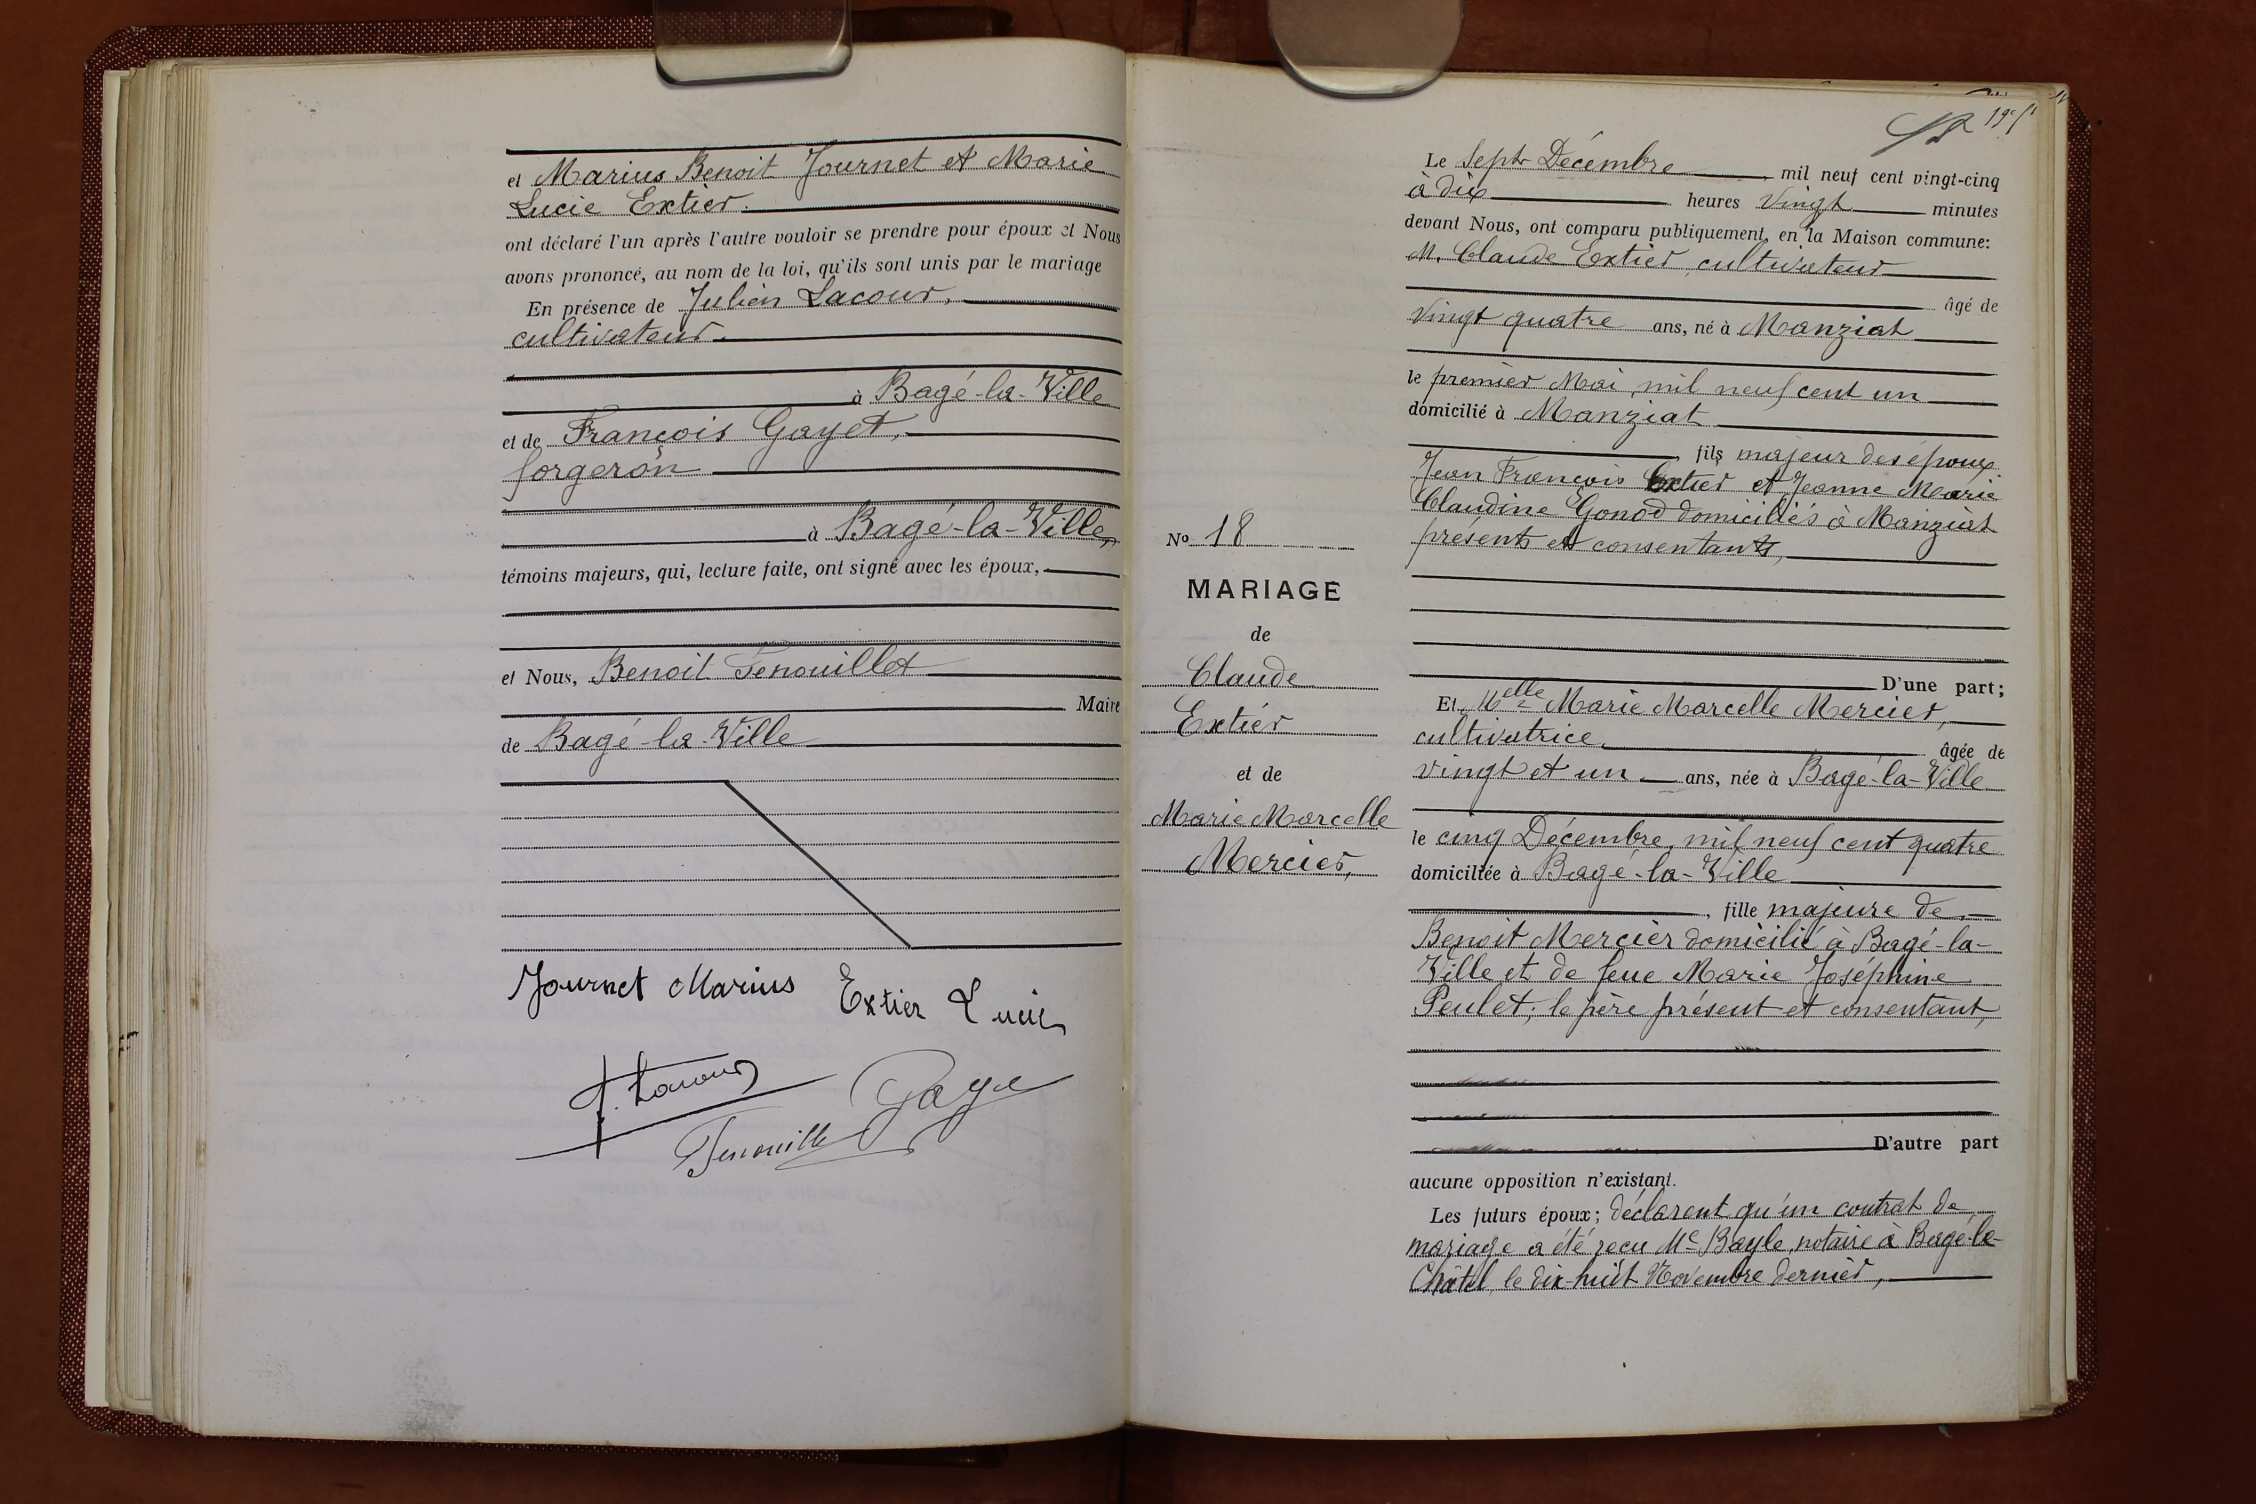 et Marius Benoit Journet et Marie
Lucie Extier.
ont déclaré l'un après l'autre vouloir se prendre pour époux et Nous
avons prononcé, au nom de la loi, qu'ils sont unis par le mariage
En présence de Julien Lacour,
cultivateur.
à Bagé-la-Ville
et de François Gayet,
forgeron
à Bagé-la-Ville,
témoins majeurs, qui, lecture faite, ont signé avec les époux,
et Nous, Benoit Fenouillet
Maire
de Bagé-la-Ville
Journet Marius Extier Lucie
J. Lacour
Gaye
Fenouille
No 18
MARIAGE
de
Claude
Extiér
et de
Marie Marcelle
Mercier,
Le Sept Décembre mil neuf cent vingt-cinq
à dix heures Vingt minutes
devant Nous, ont comparu publiquement, en la Maison commune:
M. Claude Extier, cultivateur
âgé de
Vingt quatre ans, né à Manziat
le premier Mai, mil neuf cent un
domicilié à Manziat
, fils majeur des époux
Jean François Extier et Jeanne Marie
Claudine Gonod domiciliés à Manziat
présents et consentants,
D'une part;
Et Melle Marie Marcelle Mercier,
cultivatrice, âgée de
vingt et un ans, née à Bagé-la-Ville
le cinq Décembre, mil neuf cent quatre
domiciliée à Bagé-la-Ville
, fille majeure de,
Benoit Mercier domicilié à Bagé-la-
Ville et de feue Marie Joséphine
Peulet; le père présent et consentant,
D'autre part
aucune opposition n'existant.
Les futurs époux; déclarent qu'un contrat de
mariage a été reçu Me Bayle, notaire à Bagé-le-
Châtel, le dix-huit Novembre dernier,